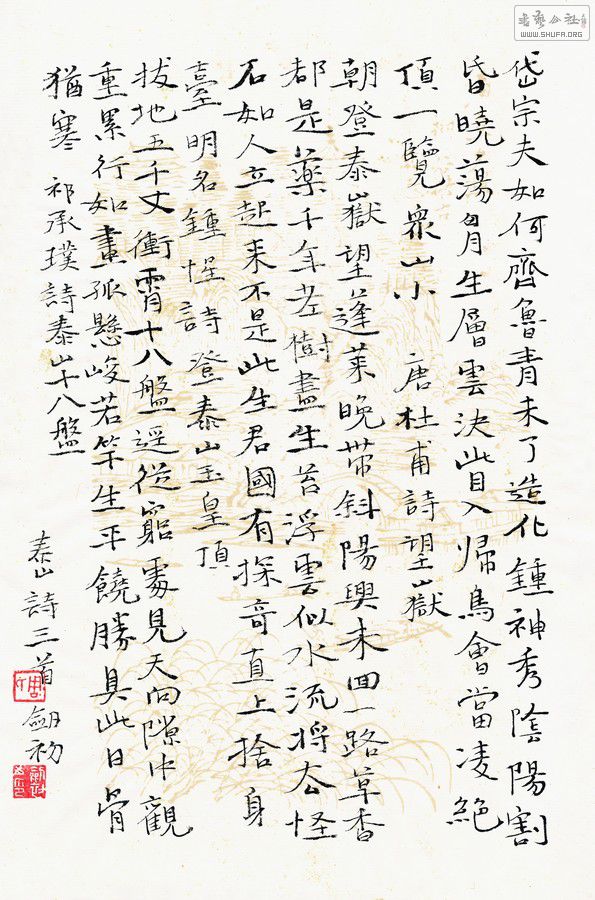 岱宗夫如何齊魯青未了造化鍾神秀陰陽割
昏曉蕩胷生層雲決眥入歸鳥會當凌絕
頂一覽眾山小 唐杜甫詩望嶽
朝登泰嶽望蓬萊晚帶斜陽興未回一路草香
都是藥千年老樹盡生苔浮雲似水流將去怪
石如人立起來不是此生君國有探奇直上捨身
臺 明名鍾惺詩登泰山玉皇頂
拔地五千丈衝霄十八盤逕從窮處見天向隙中觀
重累行如畫孤懸峻若竿生平饒勝具此日骨
猶寒 祁承璞詩泰山十八盤
泰山詩三首 劍初
書藝公社
WWW.SHUFA.ORG